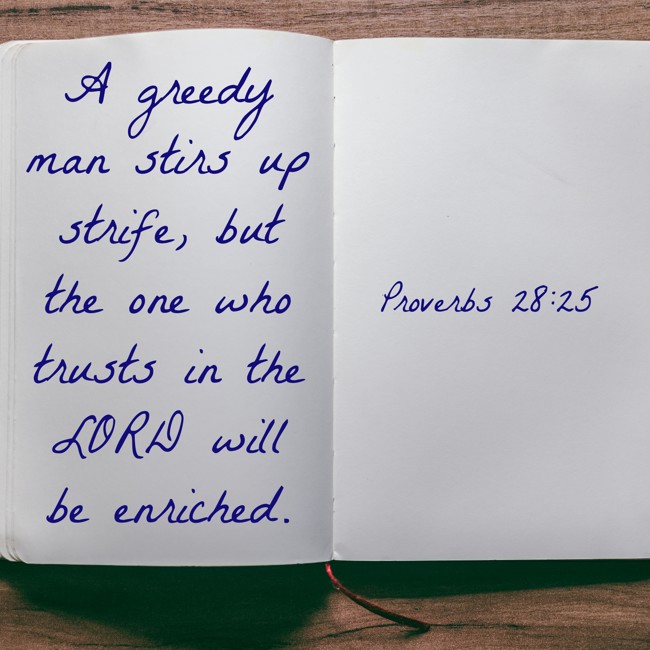 A greedy
man stirs up
strife, but
the one who
trusts in the
LORD will
be enriched.
Proverbs 28:25